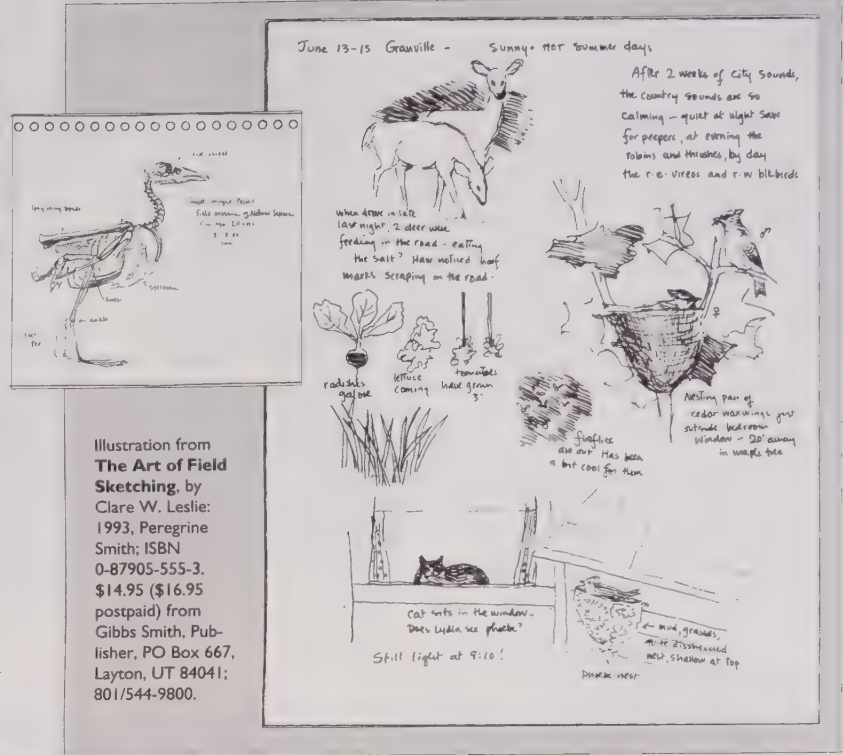 June 13-15 Granville - Sunny - Hot Summer days
After 2 weeks of City Sounds,
the country sounds are so
calming - quiet at night save
for peepers, at evening the
robins and thrushes, by day
the r.e. vireos and r.w blkbirds
when drove in late
last night, 2 deer were
feeding in the road - eating
the salt? Have noticed hoof
marks scraping on the road.
radishes
galore
lettuce
coming
tomatoes
have grown
3"
fireflies
are out Has been
a bit cool for them
♂
♀
Nesting pair of
cedar waxwings just
outside bedroom
window - 20' away
in maple tree
Cat sits in the window -
Does Lydia see phoebe?
Still light at 9:10!
← mud, grasses,
quite dissheveled
nest, shallow at Top
Phoebe nest
long wing bones
Field Museum of Natural Science
sternum
knee
ankle
Illustration from
The Art of Field
Sketching, by
Clare W. Leslie:
1993, Peregrine
Smith; ISBN
0-87905-555-3.
$14.95 ($16.95
postpaid) from
Gibbs Smith, Pub-
lisher, PO Box 667,
Layton, UT 84041;
801/544-9800.